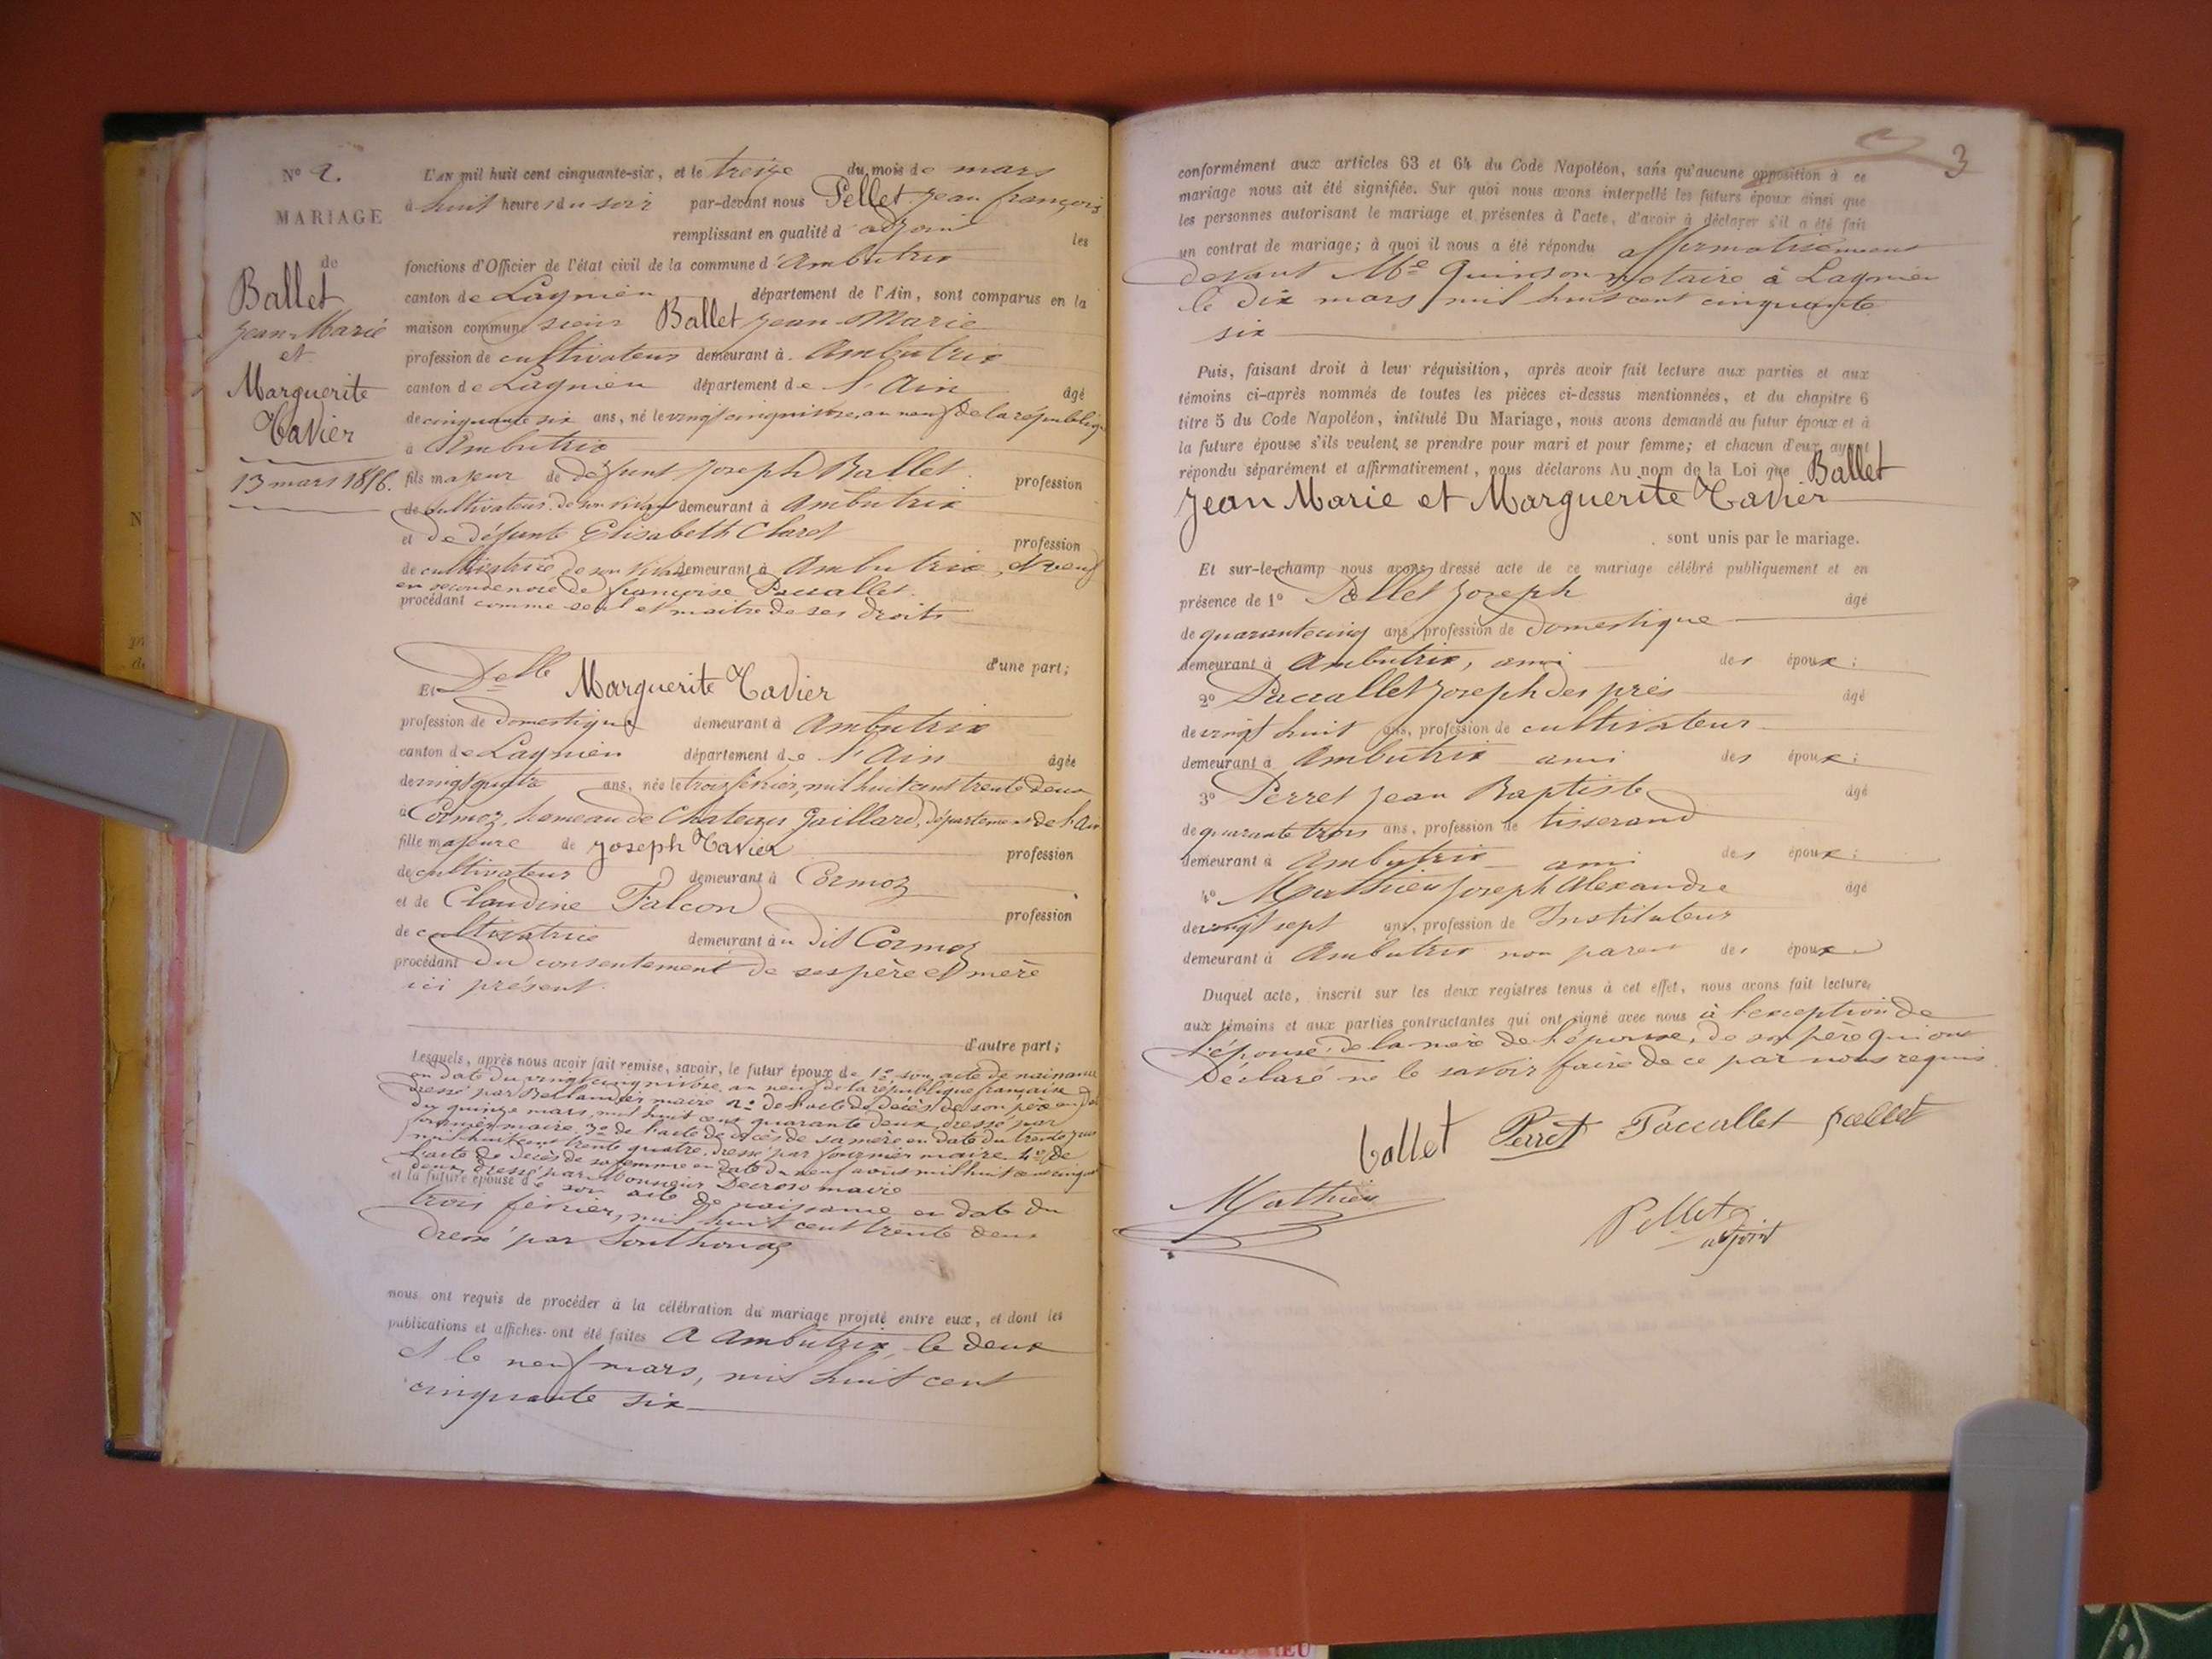 N° 2.
MARIAGE
de
Ballet
Jean-Marie
et
Marguerite
Tavier
13 mars 1856.
L'AN mil huit cent cinquante-six, et le treize du mois de mars
à huit heures du soir par-devant nous Pellet Jean françois
remplissant en qualité d'adjoint les
fonctions d'Officier de l'état civil de la commune d'Ambutrix
canton de Lagnieu département de l'Ain, sont comparus en la
maison commune sieur Ballet Jean-Marie
profession de cultivateur demeurant à Ambutrix
canton de Lagnieu département de l'Ain âgé
de cinquante six ans, né le vingt cinq nivose, an neuf de la république
à Ambutrix
fils majeur de défunt Joseph Ballet profession
de cultivateur de son vivant demeurant à Ambutrix
et de défunte Elisabeth Claret profession
de cultivatrice de son vivant demeurant à Ambutrix, et veuf
en seconde noce de françoise Paccallet
procédant comme seul et maitre de ses droits
d'une part;
Et Delle Marguerite Tavier
profession de domestique demeurant à Ambutrix
canton de Lagnieu département de l'Ain âgée
de vingt quatre ans, née le trois février, mil huit cent trente deux
à Cormoz, hameau de Chateau Gaillard, département de l'Ain
fille majeure de Joseph Tavier profession
de cultivateur demeurant à Cormoz
et de Claudine Falcon profession
de cultivatrice demeurant au dit Cormoz
procédant du consentement de ses père et mère
ici présent.
d'autre part;
Lesquels, après nous avoir fait remise, savoir, le futur époux de 1° son acte de naissance
en date du vingt cinq nivose an neuf de la république française
dressé par maire 2° de l'acte de décès de son père en date
du quinze mars, mil huit cent quarante deux, dressé par
fournier maire 3° de l'acte de décès de sa mère en date du trente
mil huit cent trente quatre, dressé par fournier maire 4° de
l'acte de décès de sa femme en date du neuf août mil huit cent cinquante
deux dressé par Monsieur Decroso maire
et la future épouse de son acte de naissance en date du
trois février, mil huit cent trente deux
dressé par
nous ont requis de procéder à la célébration du mariage projeté entre eux, et dont les
publications et affiches ont été faites à Ambutrix, le deux
et le neuf mars, mil huit cent
cinquante six
3
conformément aux articles 63 et 64 du Code Napoléon, sans qu'aucune opposition à ce
mariage nous ait été signifiée. Sur quoi nous avons interpellé les futurs époux ainsi que
les personnes autorisant le mariage et présentes à l'acte, d'avoir à déclarer s'il a été fait
un contrat de mariage; à quoi il nous a été répondu affirmativement
devant Me Quinson notaire à Lagnieu
le dix mars mil huit cent cinquante
six
Puis, faisant droit à leur réquisition, après avoir fait lecture aux parties et aux
témoins ci-après nommés de toutes les pièces ci-dessus mentionnées, et du chapitre 6
titre 5 du Code Napoléon, intitulé Du Mariage, nous avons demandé au futur époux et à
la future épouse s'ils veulent se prendre pour mari et pour femme; et chacun d'eux ayant
répondu séparément et affirmativement, nous déclarons Au nom de la Loi que Ballet
Jean Marie et Marguerite Tavier
sont unis par le mariage.
Et sur-le-champ nous avons dressé acte de ce mariage célébré publiquement et en
présence de 1° Pellet Joseph âgé
de quarante cinq ans, profession de domestique
demeurant à Ambutrix, ami des époux;
2° Paccallet Joseph des prés âgé
de vingt huit ans, profession de cultivateur
demeurant à Ambutrix ami des époux;
3° Perret Jean Baptiste âgé
de quarante trois ans, profession de tisserand
demeurant à Ambutrix ami des époux;
4° Mathieu Joseph Alexandre âgé
de vingt sept ans, profession de Instituteur
demeurant à Ambutrix non parent des époux
Duquel acte, inscrit sur les deux registres tenus à cet effet, nous avons fait lecture
aux témoins et aux parties contractantes qui ont signé avec nous à l'exception de
l'épouse, de la mère de l'épouse, de son père qui ont
déclaré ne le savoir faire de ce par nous requis
ballet Perret Paccallet pellet
Mathieu
Pellet
adjoint